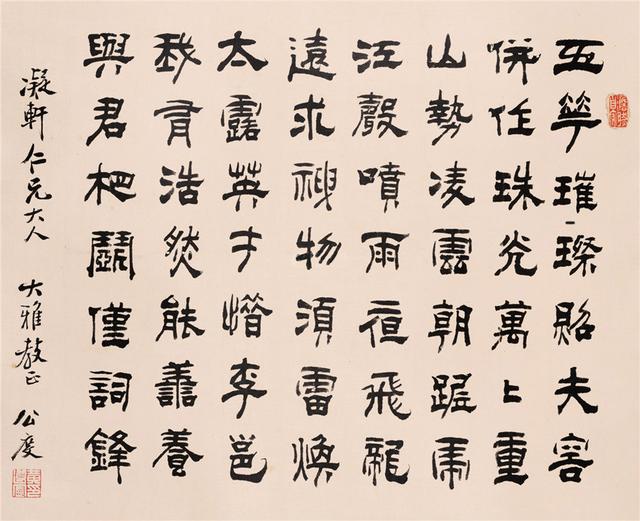 五華璀璨夫容
併任珠光萬上重
山勢凌雲朝踞虎
江聲噴雨夜飛龍
遠求神物須雷煥
太露英才惜李邕
我有浩然能善養
與君杷鬭僅詞鋒
凝軒仁兄大人 大雅教正 公度